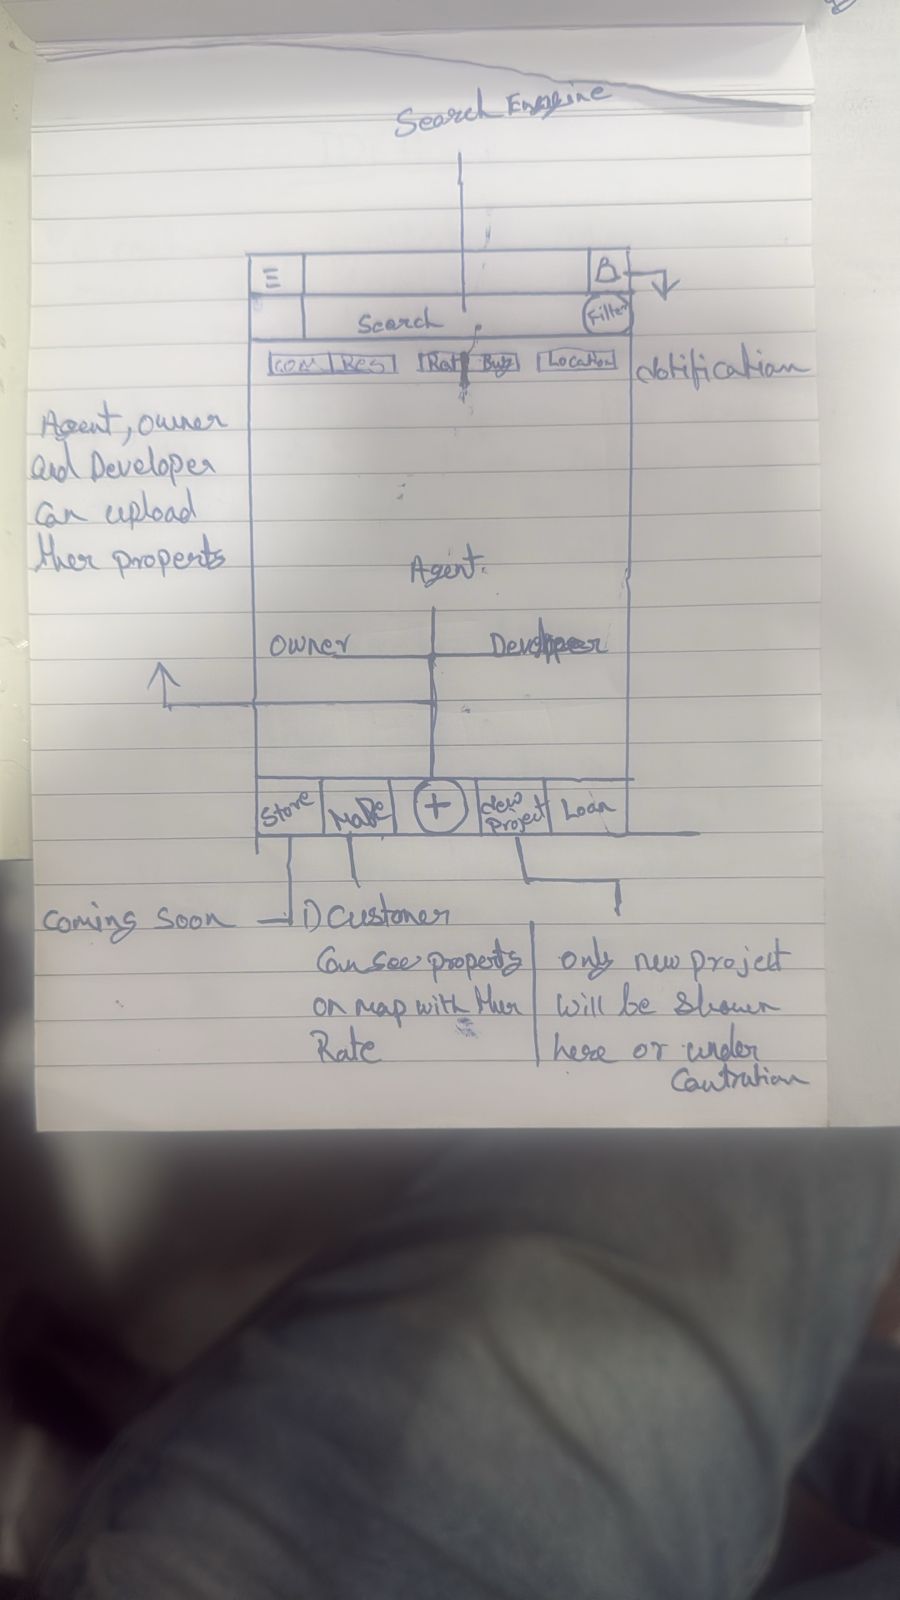 Search Engine
Search
Filter
Com Res Rat Buy Location
Notification
Agent, owner
and Developer
Can upload
ther property
Agent.
Owner
Developer
Store Map + New Project Loan
Coming Soon
1) Customer
Can see property
on map with ther
Rate
only new project
will be shown
here or under
Contrution